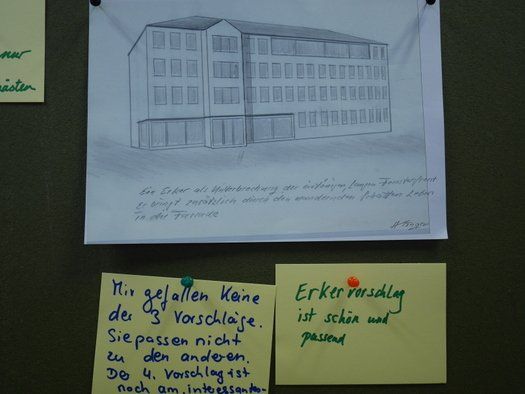 nur
Ein Erker als Unterbrechung der eintönigen, langen Fensterfront
Er bringt zusätzlich durch den wandernden Schatten Leben
in die Fassade
Mir gefallen keine
der 3 Vorschläge.
Sie passen nicht
zu den anderen.
Der 4. Vorschlag ist
noch am interessante-
Erkervorschlag
ist schön und
passend